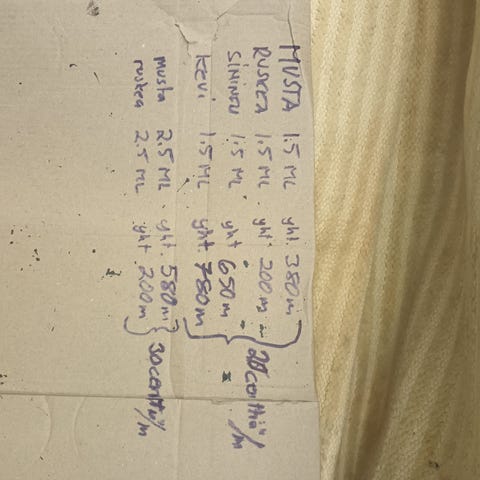 MUSTA 1.5 ML yht. 380m
RUSKEA 1.5 ML yht. 200m
SININEN 1.5 ML yht 650m
KEVI 1.5 ML yht. 780m
20 centtiä/m
musta 2.5 ML yht. 580m
ruskea 2.5 ML yht. 200m
30 centtiä/m